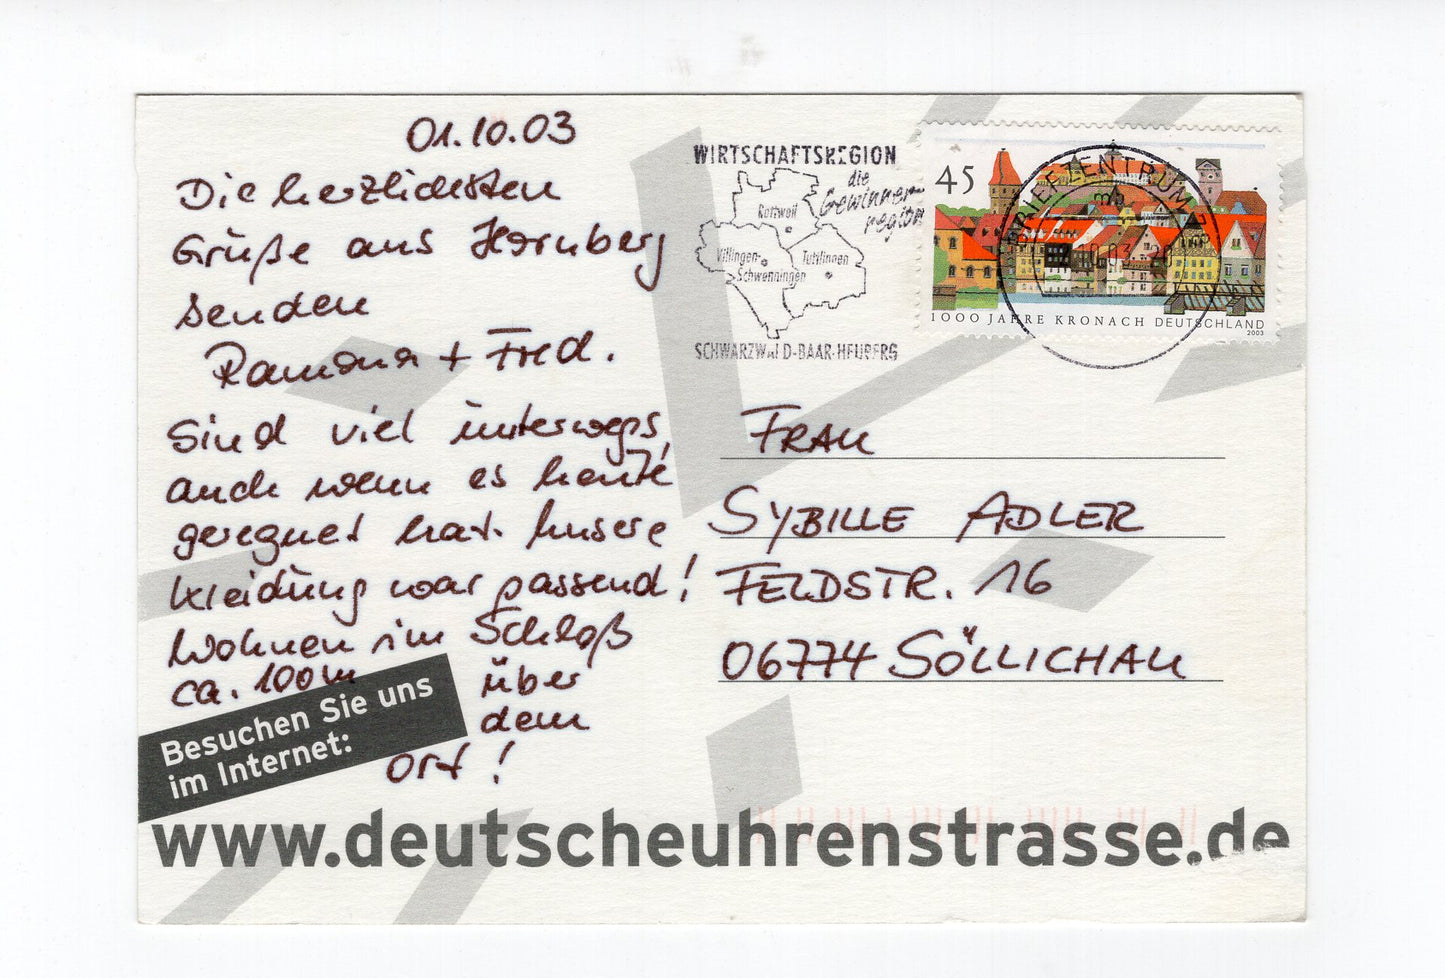 01.10.03
Die herzlichsten
Grüße aus Hornberg
senden
Ramona + Fred.
Sind viel unterwegs,
auch wenn es heute
geregnet hat. Unsere
Kleidung war passend!
Wohnen im Schloß
ca. 100m über
dem
Ort!
Besuchen Sie uns
im Internet:
www.deutscheuhrenstrasse.de
WIRTSCHAFTSREGION
die
Gewinner-
region
Rottweil
Villingen-
Schwenningen
Tuttlingen
SCHWARZWALD-BAAR-HEUBERG
45
BRIEFZENTRUM
1000 JAHRE KRONACH DEUTSCHLAND
2003
FRAU
SYBILLE ADLER
FELDSTR. 16
06774 SÖLLICHAU